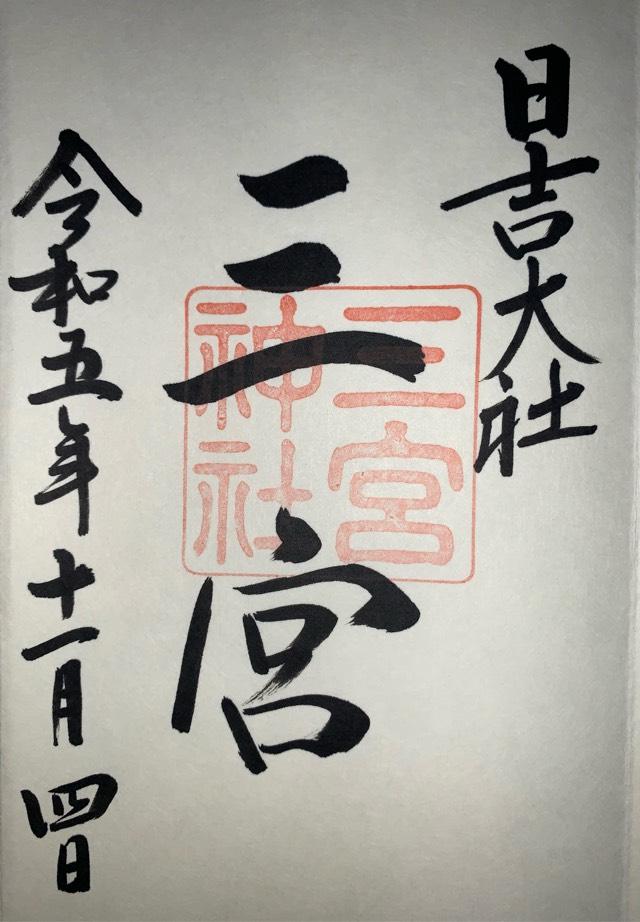 日吉大社
三宮
三宮
神社
令和五年十一月四日